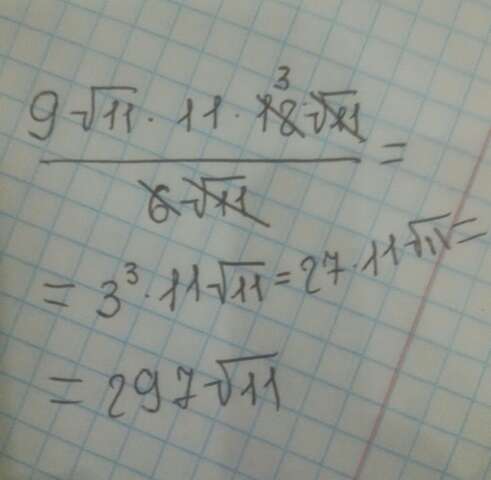 9√11 · 11 · 18 3 √11 =
6√11
= 3³ · 11√11 = 27 · 11√11 =
= 297√11